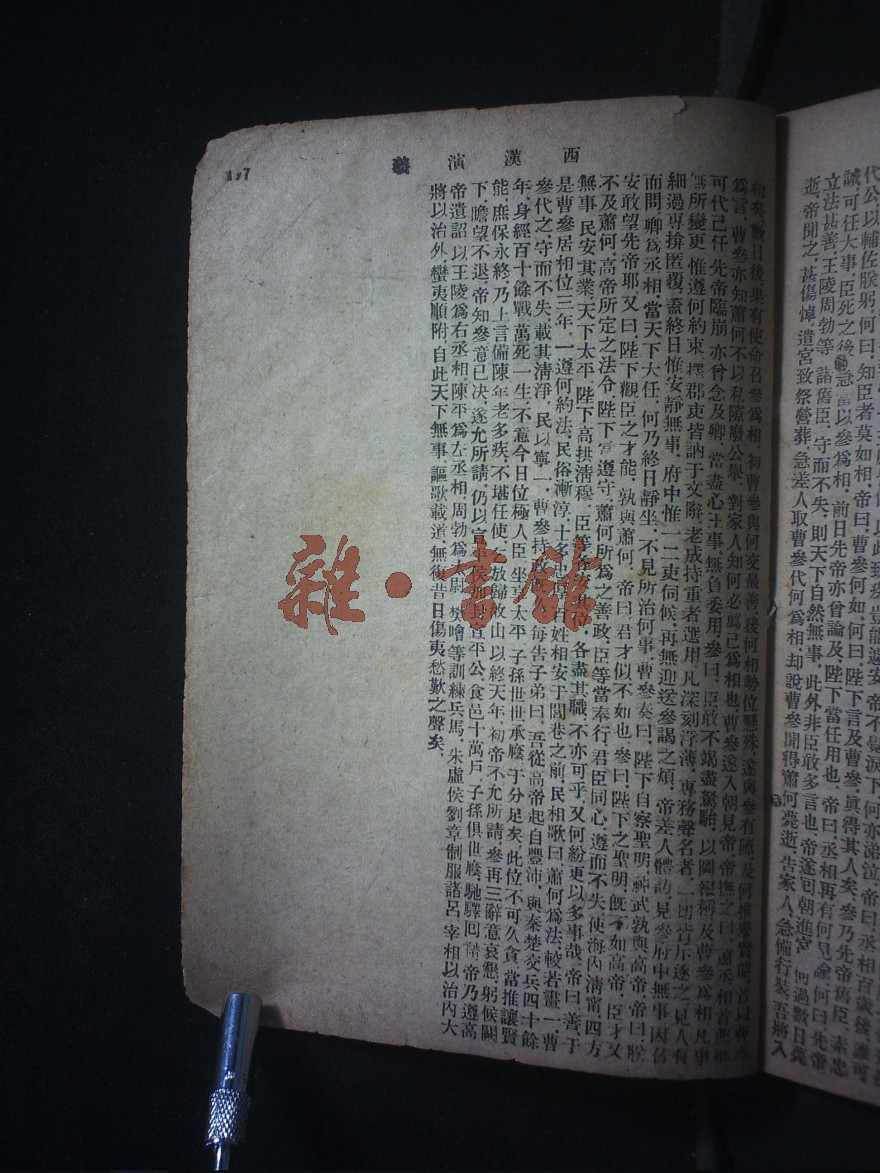 代公以輔佐朕躬何曰知臣者莫如相帝曰曹參何如何曰陛下言及曹參眞得其人矣參乃先帝舊臣素忠
誠可任大事臣死之後急當以參爲相前日先帝亦曾論及陛下當任用也帝曰丞相再有何見諭何曰先帝
立法甚善王陵周勃等諸舊臣守而不失則天下自然無事此外非臣敢多言也帝遂回朝進宮過數日薨
逝帝聞之甚傷悼遣宮致祭營葬急差人取曹參代何爲相却說曹參聞得蕭何薨逝告家人急備行裝吾將入
西漢演義
相矣數日後果有使命召參爲相初曹參與何交最善後何相勢位懸殊遂與參有隙及何推舉賢能首以曹參
爲言曹參亦知蕭何不以私隙廢公舉對家人知何必薦己爲相也曹參遂入朝見帝帝撫之曰蕭丞相首薦卿
可代己任先帝臨崩亦曾念及卿當盡心王事無負委用參曰臣敢不竭盡駑駘以圖報稱及曹參爲相凡事
無所變更惟遵何約束擇郡吏皆訥于文辭老成持重者選用凡深刻浮薄專務聲名者一切皆斥逐之見人有
細過專揜匿覆蓋終日惟安靜無事府中惟一二吏伺候再無迎送參謁之煩帝差人體訪見參府中無事因召
而問卿爲丞相當天下大任何乃終日靜坐不見所治何事曹參奏曰陛下自察聖明神武孰與高帝帝曰朕
安敢望先帝耶又曰陛下觀臣之才能孰與蕭何帝曰君才似不如也參曰陛下之聖明旣不如高帝臣才又
不及蕭何高帝所定之法令陛下當遵守蕭何所爲之善政臣等當奉行君臣同心遵而不失使海內淸甯四方
無事民安其業天下太平陛下高拱淸穆臣等各守其位各盡其職不亦可乎又何紛更以多事哉帝曰善于
是曹參居相位三年一遵何約法民俗漸淳士多忠厚百姓相安于閭巷之前民相歌曰蕭何爲法較若畫一曹
參代之守而不失載其淸淨民以寧一曹參持政旣久每告子弟曰吾從高帝起自豐沛與秦楚交兵四十餘
年身經百十餘戰萬死一生不意今日位極人臣坐享太平子孫世世承廕于分足矣此位不可久貪當推讓賢
能庶保永終乃上言備陳年老多疾不堪任使乞放歸故山以終天年初帝不允所請參再三辭意哀懇躬候闕
下瞻望不退帝知參意已決遂允所請仍以平侯加封宣平公食邑十萬戶子孫俱世廕馳驛回帝乃遵高
帝遺詔以王陵爲右丞相陳平爲左丞相周勃爲太尉樊噲等訓練兵馬朱虛侯劉章制服諸呂宰相以治內大
將以治外蠻夷順附自此天下無事謳歌載道無復昔日傷夷愁歎之聲矣
197
雜·書館